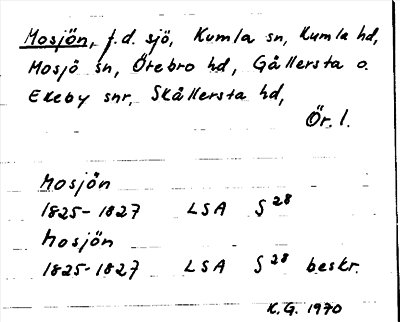 Mosjön, f.d. sjö, Kumla sn, Kumla hd,
Mosjö sn, Örebro hd, Gällersta o.
Ekeby snr, Skållersta hd,
Ör. l.
Mosjön
1825-1827 LSA S 28
Mosjön
1825-1827 LSA S 28 beskr.
K.G. 1970